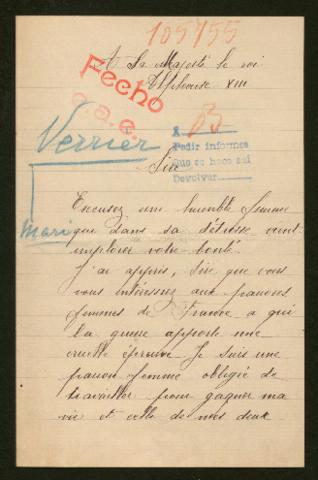 105755
A Sa Majesté le roi
Alphonse XIII
Fecho
Verrier
A B
Pedir informes
Que se hace así
Devolver
Sire
Mari
Excusez une humble femme
qui dans sa détresse vient
implorer votre bonté.
J'ai appris, Sire que vous
vous intéressez aux pauvres
femmes de France a qui
la guerre apporte une
cruelle épreuve. Je suis une
pauvre femme obligée de
travailler pour gagner ma
vie et celle de mes deux